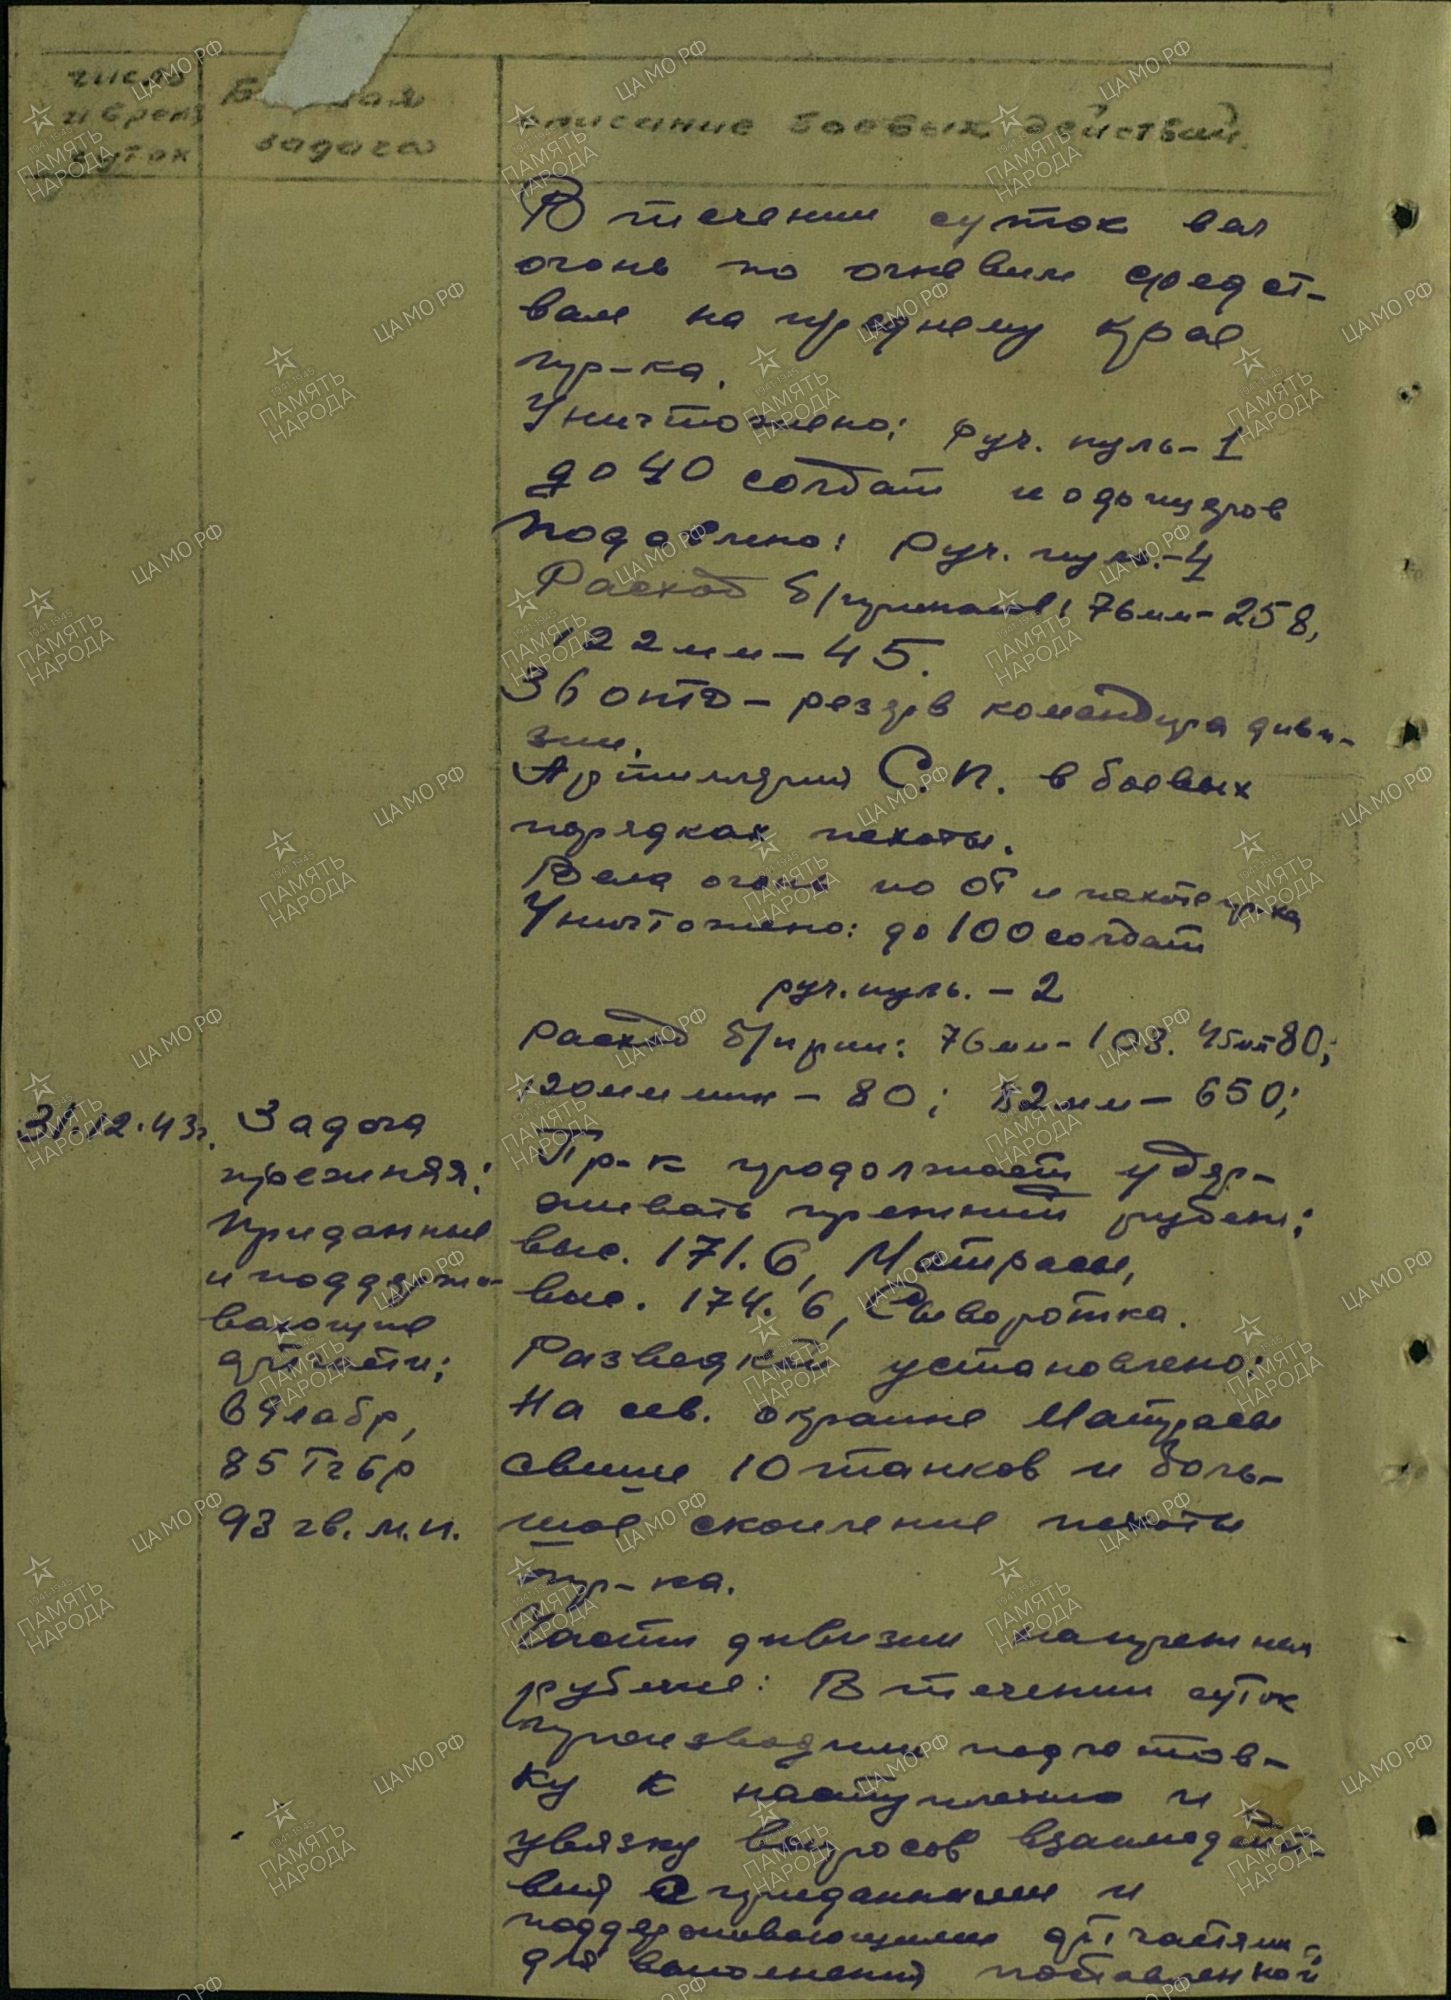 число и время суток
Боевая задача
описание боевых действий
В течении суток вел
огонь по огневым средст-
вам на переднему крае
пр-ка.
Уничтожено: руч. пуль-1
до 40 солдат и офицеров
Подавлено: Руч. пул.-4
Расход б/припасов: 76мм-258,
122мм-45.
36 оптд-резерв командира диви-
зии.
Артиллерия С.П. в боевых
порядках пехоты.
Вела огонь по ОТ и пехоте пр-ка
Уничтожено: до 100 солдат
руч. пуль. - 2
Расход б/прип: 76мм-103. 45мм-80;
120мм мин-80; 82мм-650;
31.12.43г.
Задача
прежняя:
Приданные
и поддержи-
вающие
артчасти;
69 лабр,
85 ГгБр
93 гв. м.п.
Пр-к продолжает удер-
живать прежний рубеж:
выс. 171.6, Матрасы,
выс. 174.6, Сыворотка.
Разведкой установлено:
На сев. окраине Матрасы
свыше 10 танков и боль-
шое скопление пехоты
пр-ка.
Части дивизии на прежнем
рубеже: В течении суток
производили подготов-
ку к наступлению и
увязку вопросов взаимодейст-
вия с приданными и
поддерживающими артчастями
для выполнения поставленной